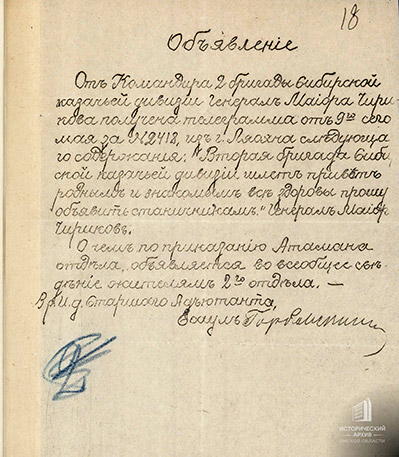 18
Объявленіе
Отъ Командира 2 бригады Сибирской
казачьей дивизіи Генералъ Маіора Чири-
кова получена телеграмма отъ 9го сего
мая за №2418, изъ г. Ляояна слѣдующа-
го содержанія: "Вторая бригада Сибир-
ской казачьей дивизіи шлетъ привѣтъ
роднымъ и знакомымъ всѣ здоровы прошу
объявить станичникамъ." Генералъ Маіоръ
Чириковъ.
О чемъ по приказанію Атамана
отдѣла, объявляется во всеобщее свѣ-
дѣніе жителямъ 2го отдѣла. —
Вр. И. д. Старшаго Адъютанта,
Есаулъ
ИСТОРИЧЕСКИЙ
АРХИВ
ОМСКОЙ ОБЛАСТИ